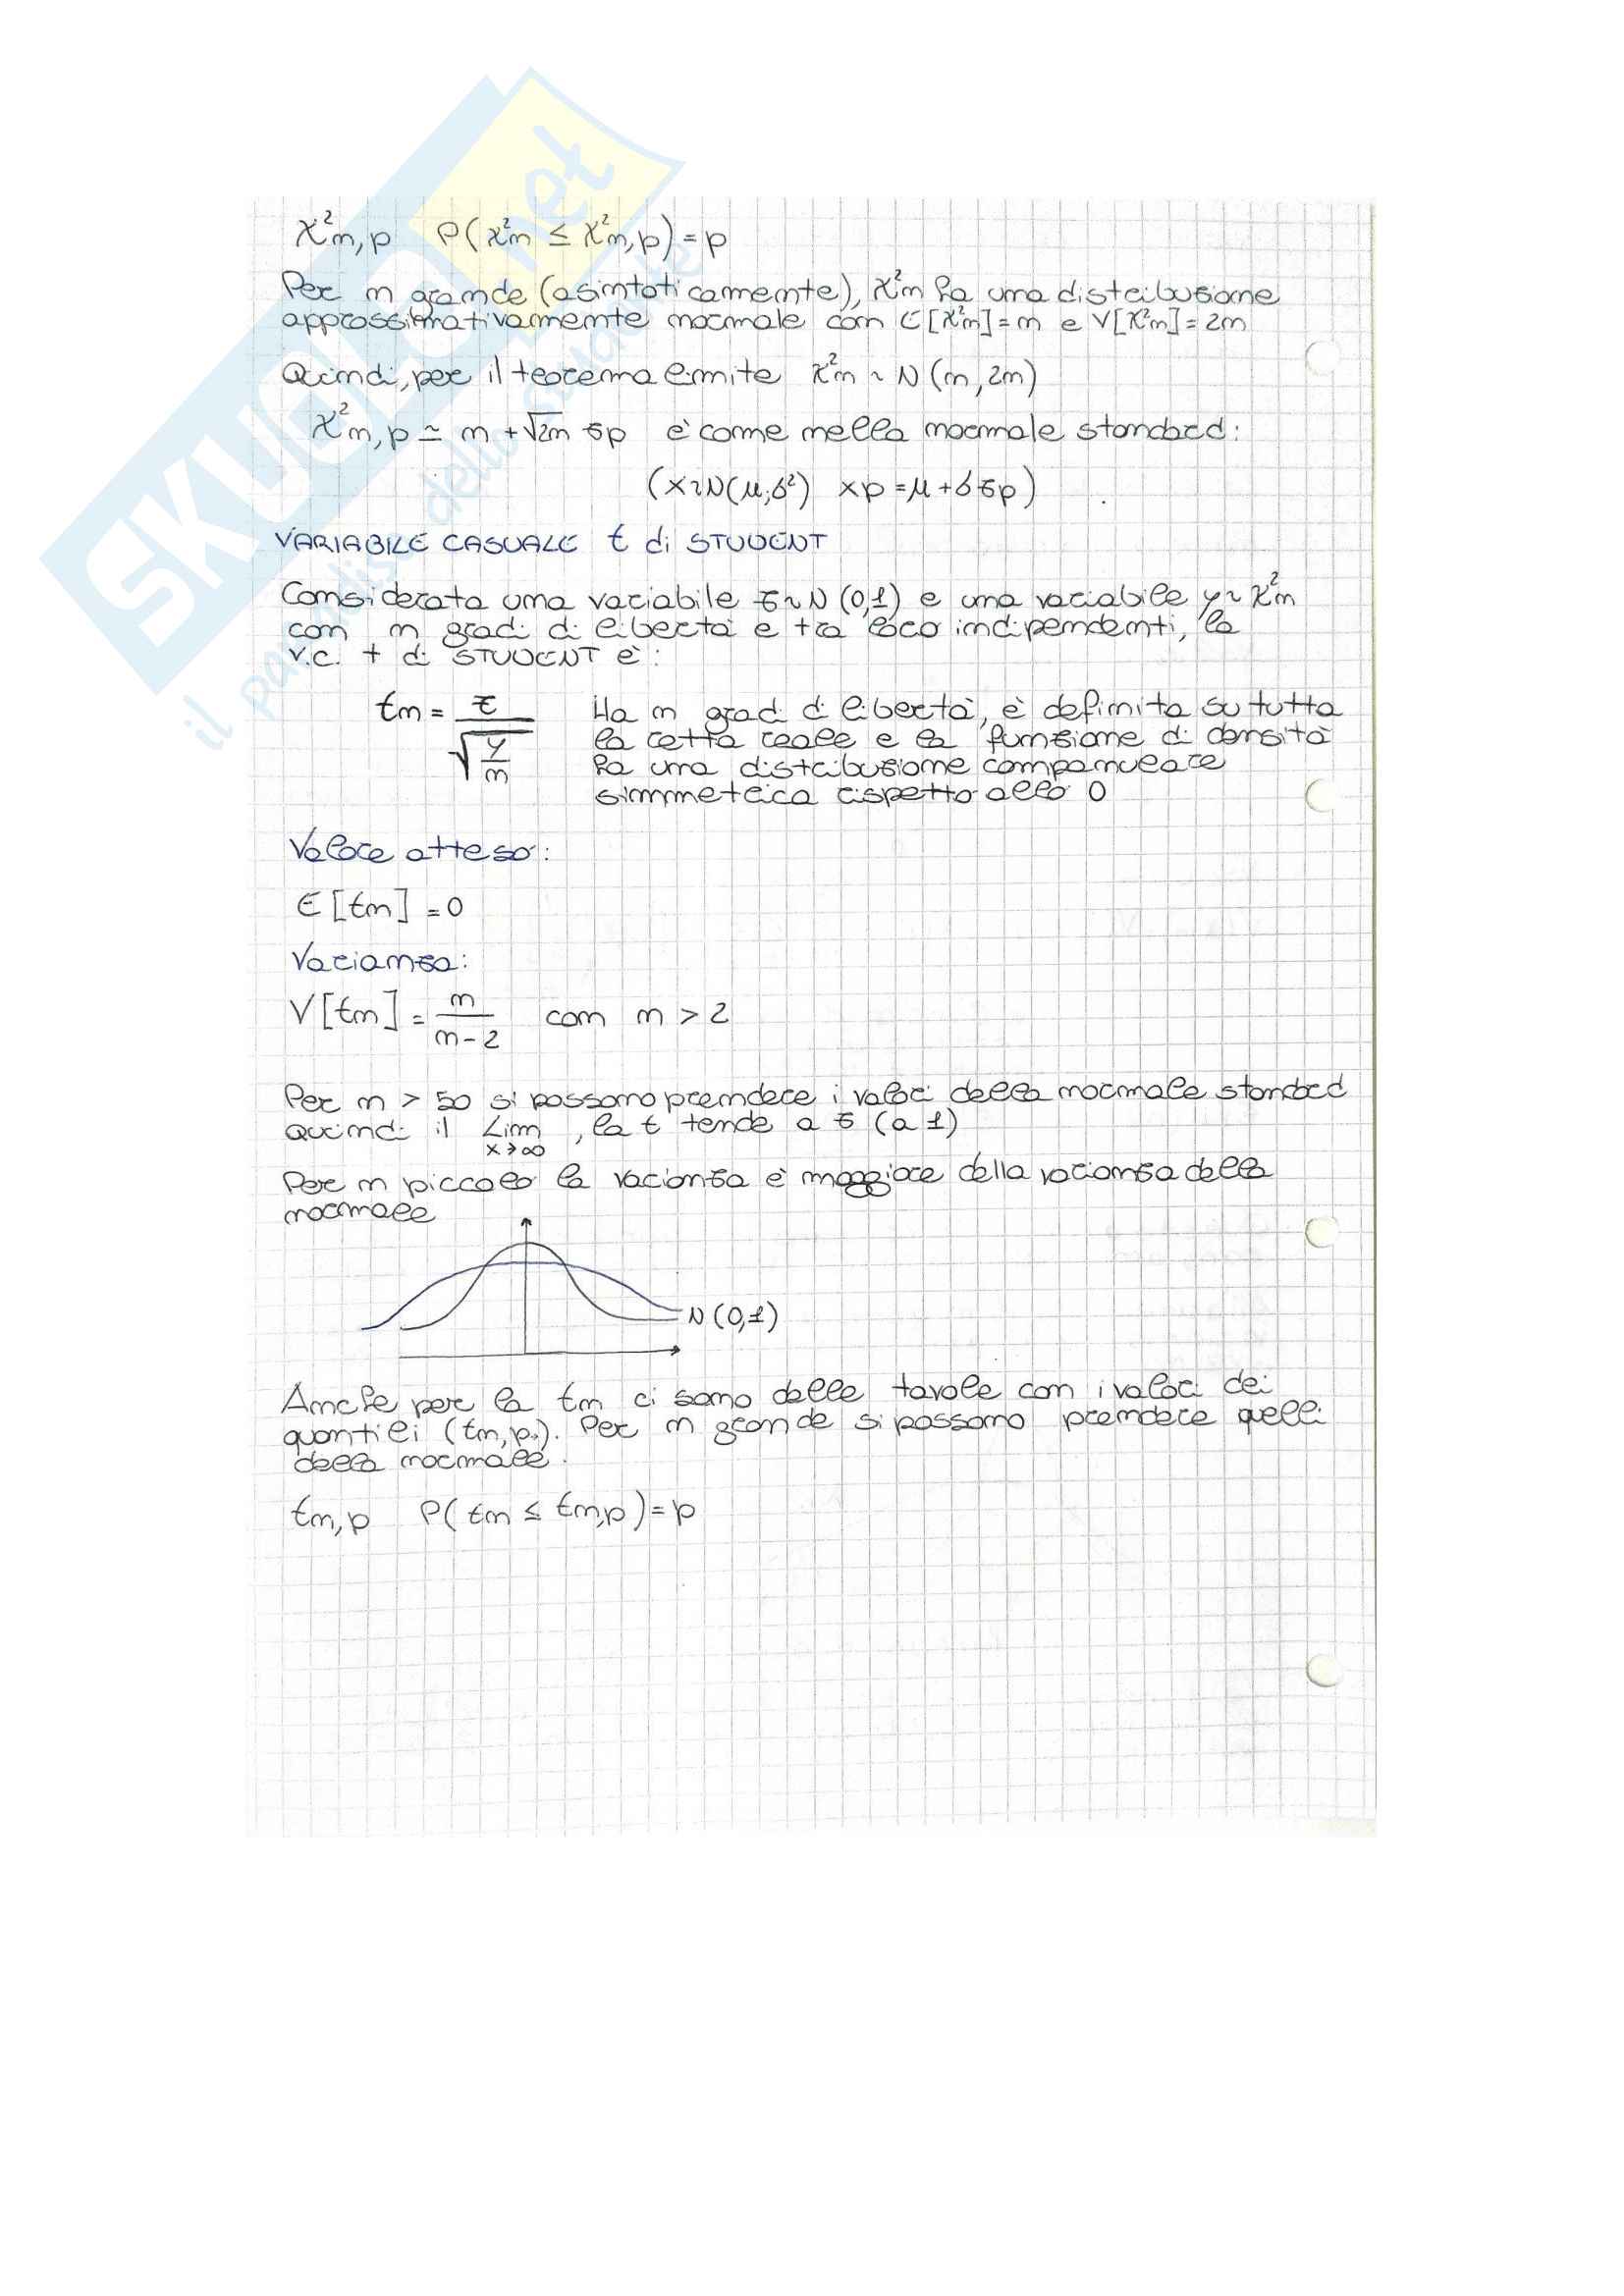 χ²m,p P(χ²m ≤ χ²m,p) = p
Per m grande (asintoticamente), χ²m ha una distribuzione
approssimativamente normale con E[χ²m] = m e V[χ²m] = 2m
Quindi, per il teorema limite χ²m ~ N(m, 2m)
χ²m,p ≃ m + √2m zp è come nella normale standard:
(X~N(μ;σ²) xp = μ + σzp)
VARIABILE CASUALE t di STUDENT
Considerata una variabile z~N(0,1) e una variabile y~χ²m
con m gradi di libertà e tra loro indipendenti, la
v.c. t di STUDENT è:
tm = z / √(y/m)
Ha m gradi di libertà, è definita su tutta
la retta reale e la funzione di densità
ha una distribuzione campanulare
simmetrica rispetto allo 0
Valore atteso:
E[tm] = 0
Varianza:
V[tm] = m / (m-2) con m > 2
Per m > 50 si possono prendere i valori della normale standard
quindi il Lim x→∞, la t tende a z (a 1)
Per m piccolo la varianza è maggiore della varianza della
normale
N(0,1)
Anche per la tm ci sono delle tavole con i valori dei
quantili (tm,p.). Per m grande si possono prendere quelli
della normale.
tm,p P(tm ≤ tm,p) = p
SKUOLA.net
il paradiso dello studente